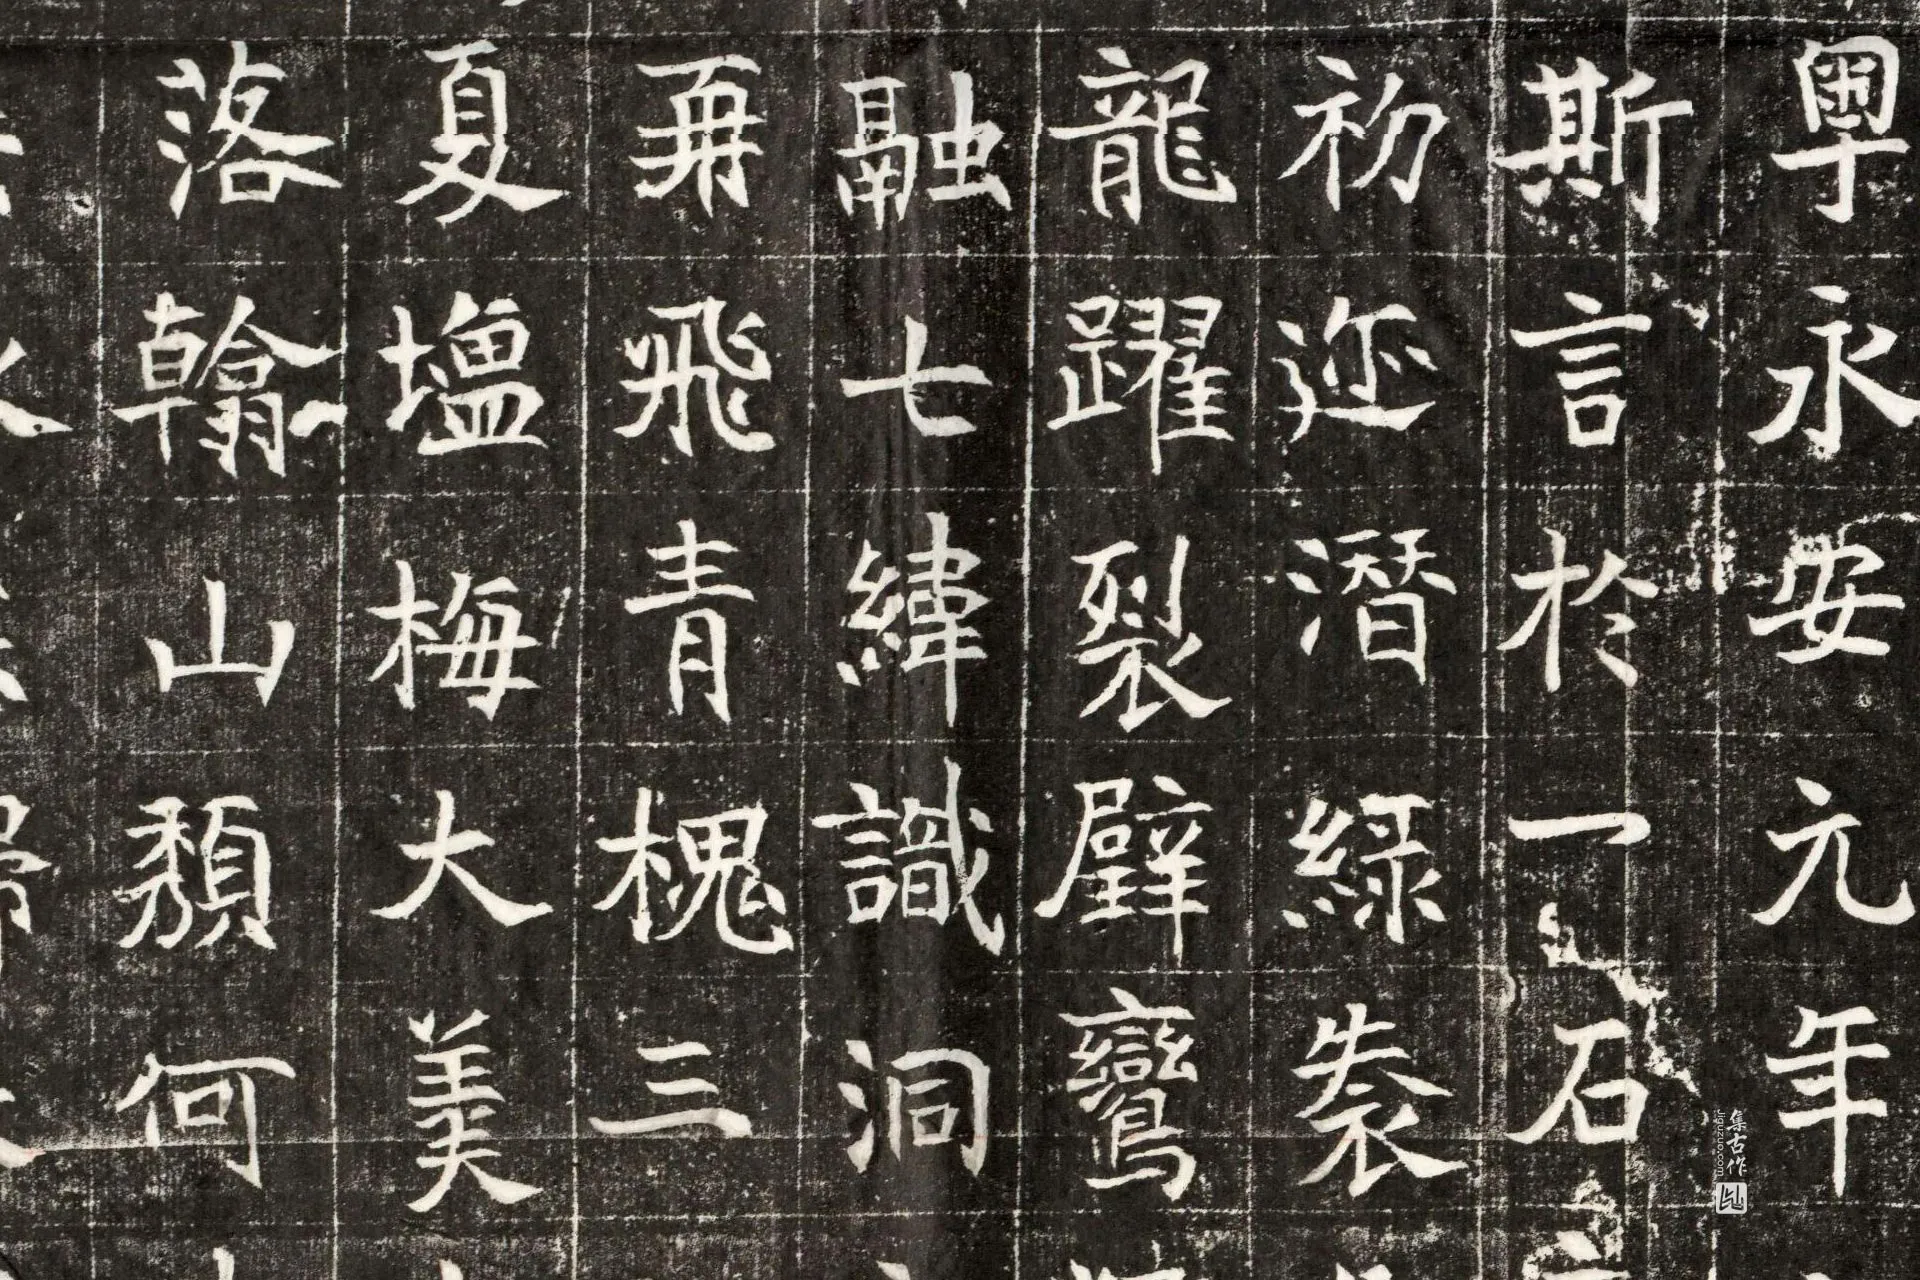 粤永安元年
斯言於一石
初迩潛綠裝
龍躍裂壁鸞
融七緯識洞
再飛青槐三
夏壃梅大美
落翰山頹何
集古作
jiguzuo.com